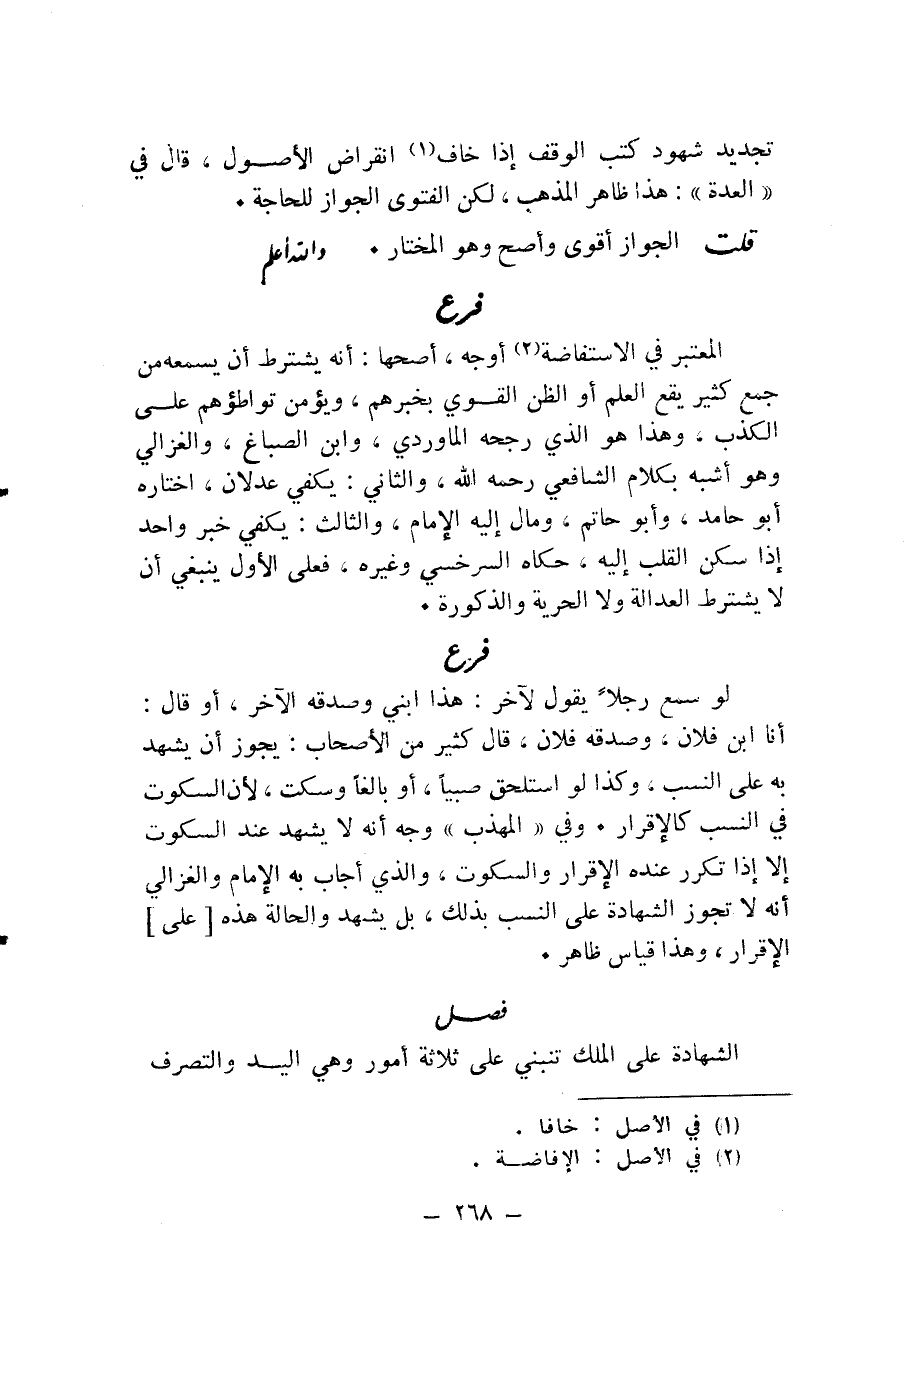 تجديد شهود كتب الوقف إذا خاف(١) انقراض الأصول ، قال في
« العدة » : هذا ظاهر المذهب ، لكن الفتوى الجواز للحاجة .
قلت الجواز أقوى وأصح وهو المختار . والله أعلم
فرع
المعتبر في الاستفاضة(٢) أوجه ، أصحها : أنه يشترط أن يسمعه من
جمع كثير يقع العلم أو الظن القوي بخبرهم ، ويؤمن تواطؤهم على
الكذب ، وهذا هو الذي رجحه الماوردي ، وابن الصباغ ، والغزالي
وهو أشبه بكلام الشافعي رحمه الله ، والثاني : يكفي عدلان ، اختاره
أبو حامد ، وأبو حاتم ، ومال إليه الإمام ، والثالث : يكفي خبر واحد
إذا سكن القلب إليه ، حكاه السرخسي وغيره ، فعلى الأول ينبغي أن
لا يشترط العدالة ولا الحرية والذكورة .
فرع
لو سمع رجلاً يقول لآخر : هذا ابني وصدقه الآخر ، أو قال :
أنا ابن فلان ، وصدقه فلان ، قال كثير من الأصحاب : يجوز أن يشهد
به على النسب ، وكذا لو استلحق صبياً ، أو بالغاً وسكت ، لأن السكوت
في النسب كالإقرار . وفي « المهذب » وجه أنه لا يشهد عند السكوت
إلا إذا تكرر عنده الإقرار والسكوت ، والذي أجاب به الإمام والغزالي
أنه لا تجوز الشهادة على النسب بذلك ، بل يشهد والحالة هذه [ على ]
الإقرار ، وهذا قياس ظاهر .
فصل
الشهادة على الملك تنبني على ثلاثة أمور وهي اليد والتصرف
(١) في الأصل : خافا .
(٢) في الأصل : الإفاضة .
– ٢٦٨ –